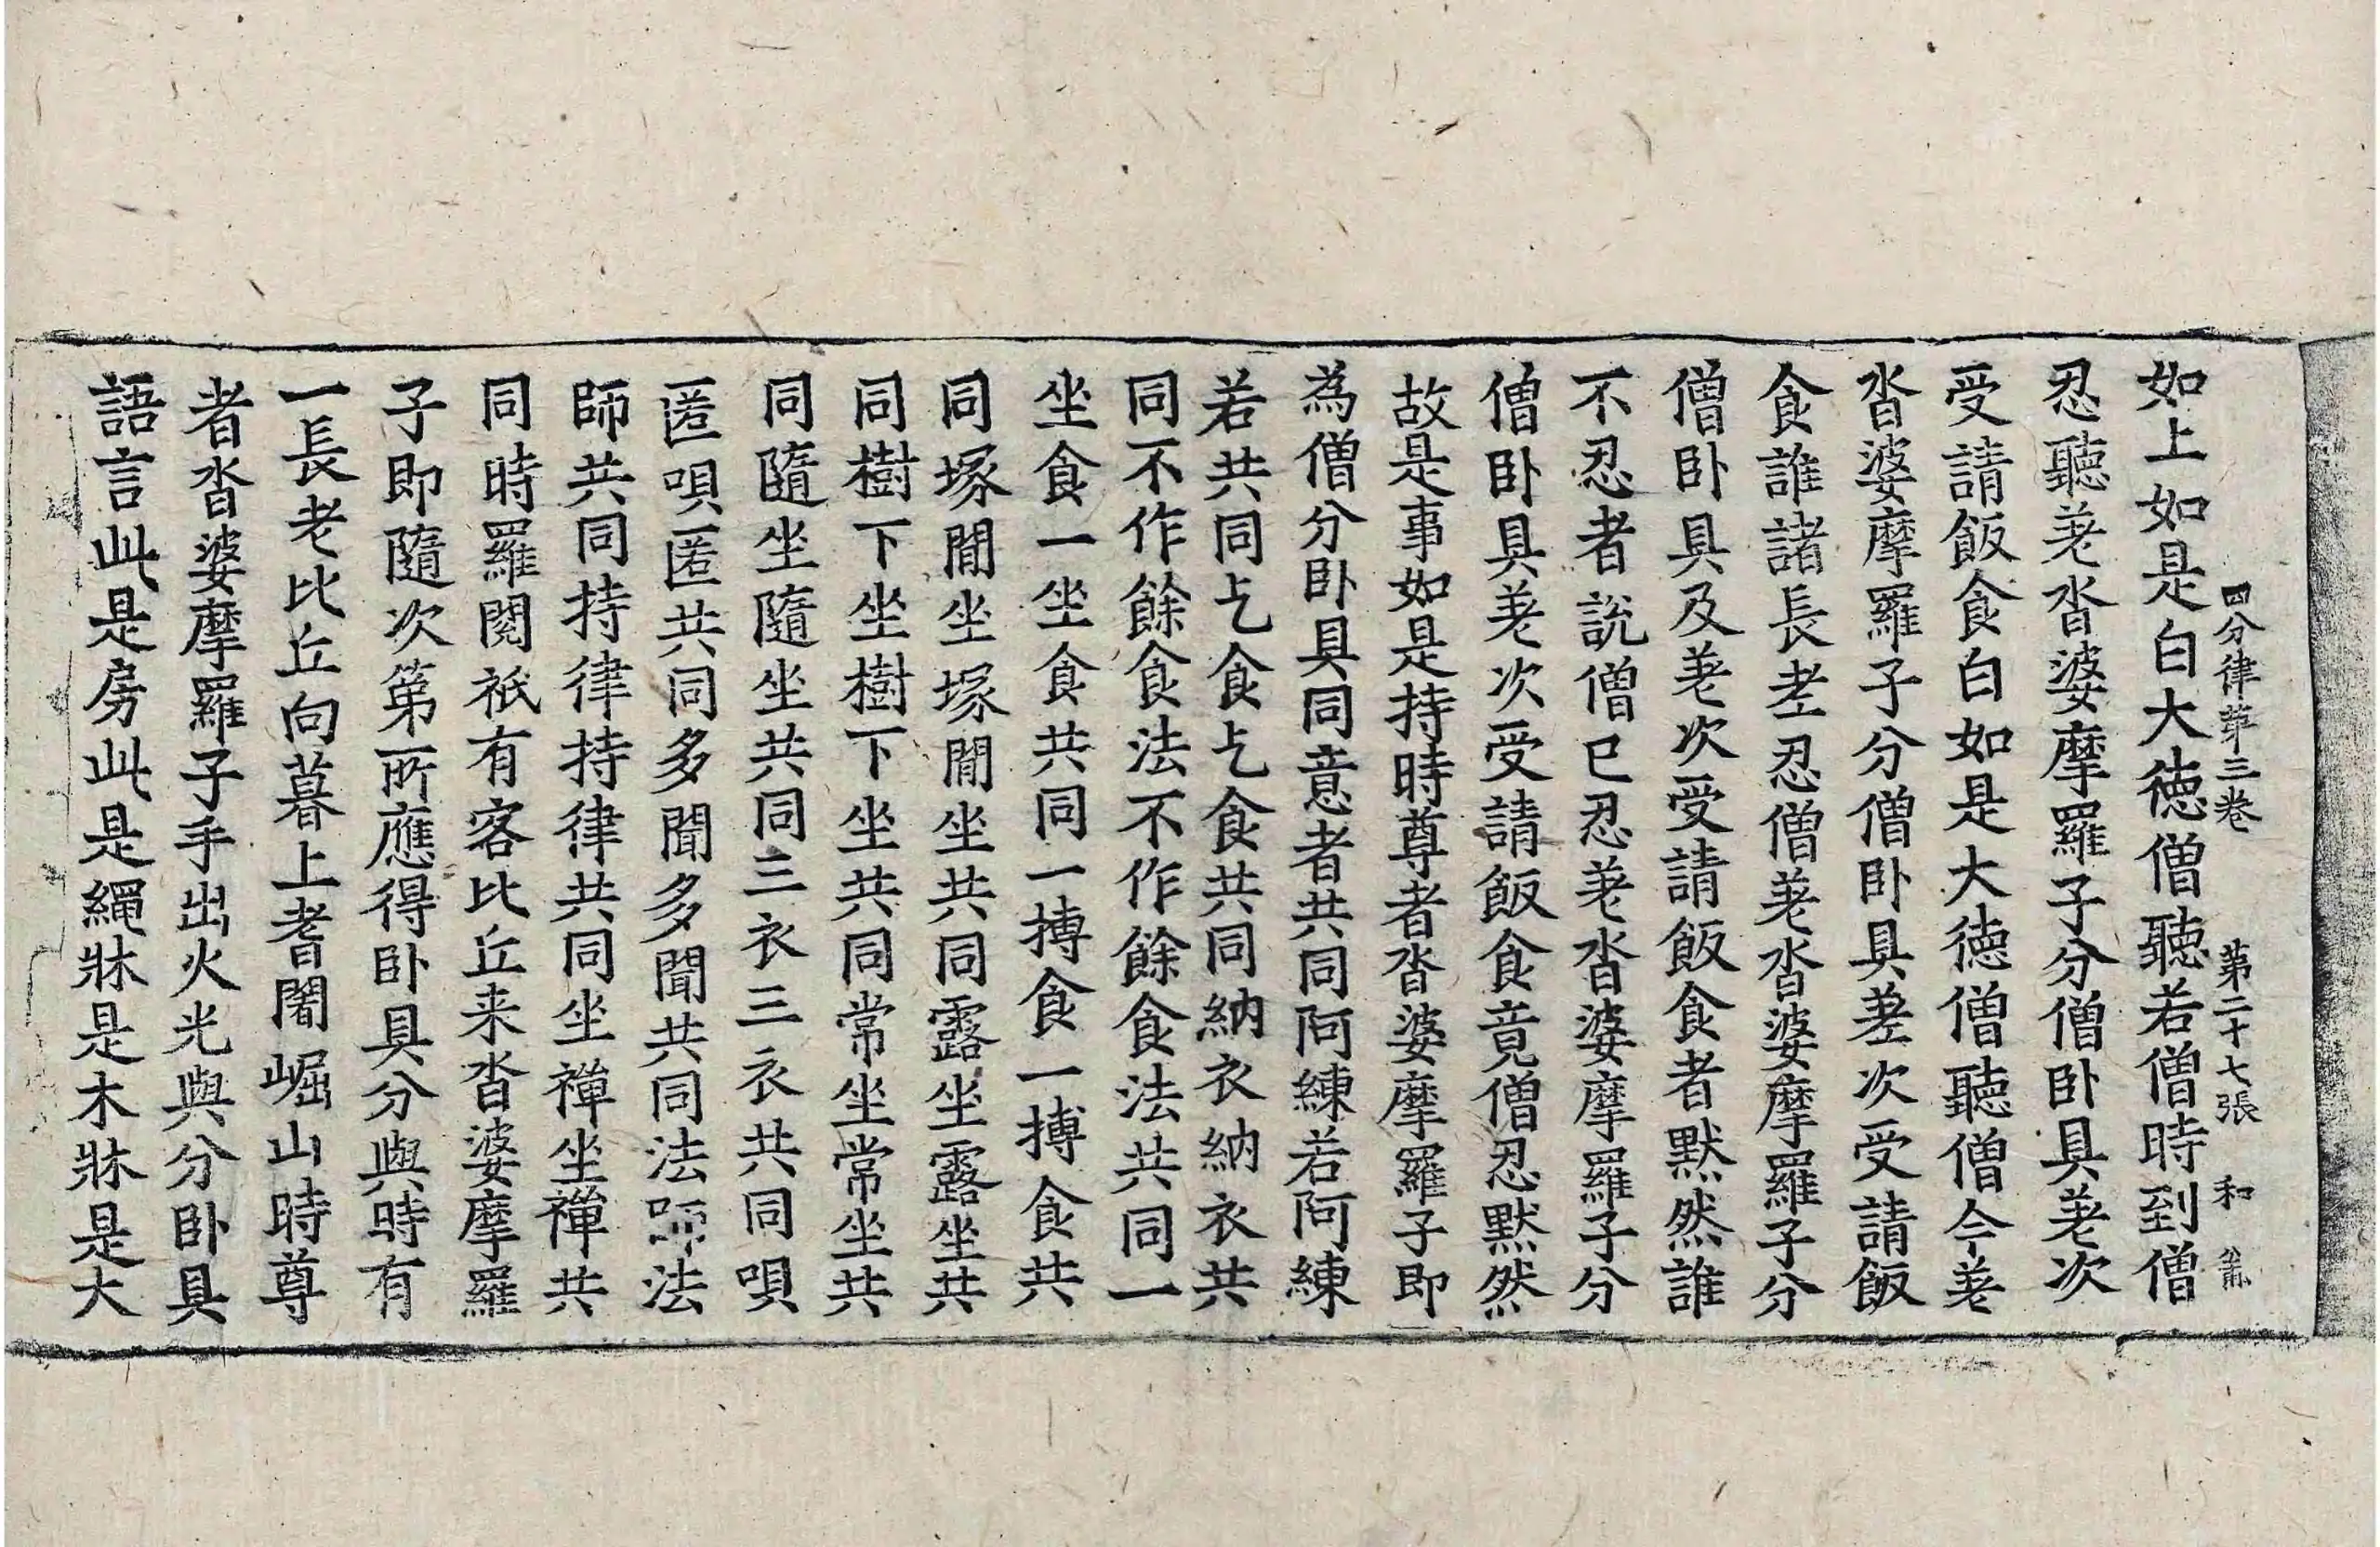 四分律苐三卷 第二十七張 和
如上如是白大德僧聽若僧時到僧
忍聽差沓婆摩羅子分僧卧具差次
受請飯食白如是大德僧聽僧今差
沓婆摩羅子分僧卧具差次受請飯
食誰諸長老忍僧差沓婆摩羅子分
僧卧具及差次受請飯食者默然誰
不忍者說僧已忍差沓婆摩羅子分
僧卧具差次受請飯食竟僧忍默然
故是事如是持時尊者沓婆摩羅子即
為僧分卧具同意者共同阿練若阿練
若共同乞食乞食共同納衣納衣共
同不作餘食法不作餘食法共同一
坐食一坐食共同一摶食一摶食共
同塚閒坐塚閒坐共同露坐露坐共
同樹下坐樹下坐共同常坐常坐共
同隨坐隨坐共同三衣三衣共同唄
匿唄匿共同多聞多聞共同法師法
師共同持律持律共同坐禪坐禪共
同時羅閱祇有客比丘来沓婆摩羅
子即隨次第所應得卧具分與時有
一長老比丘向暮上耆闍崛山時尊
者沓婆摩羅子手出火光與分卧具
語言此是房此是繩牀是木牀是大